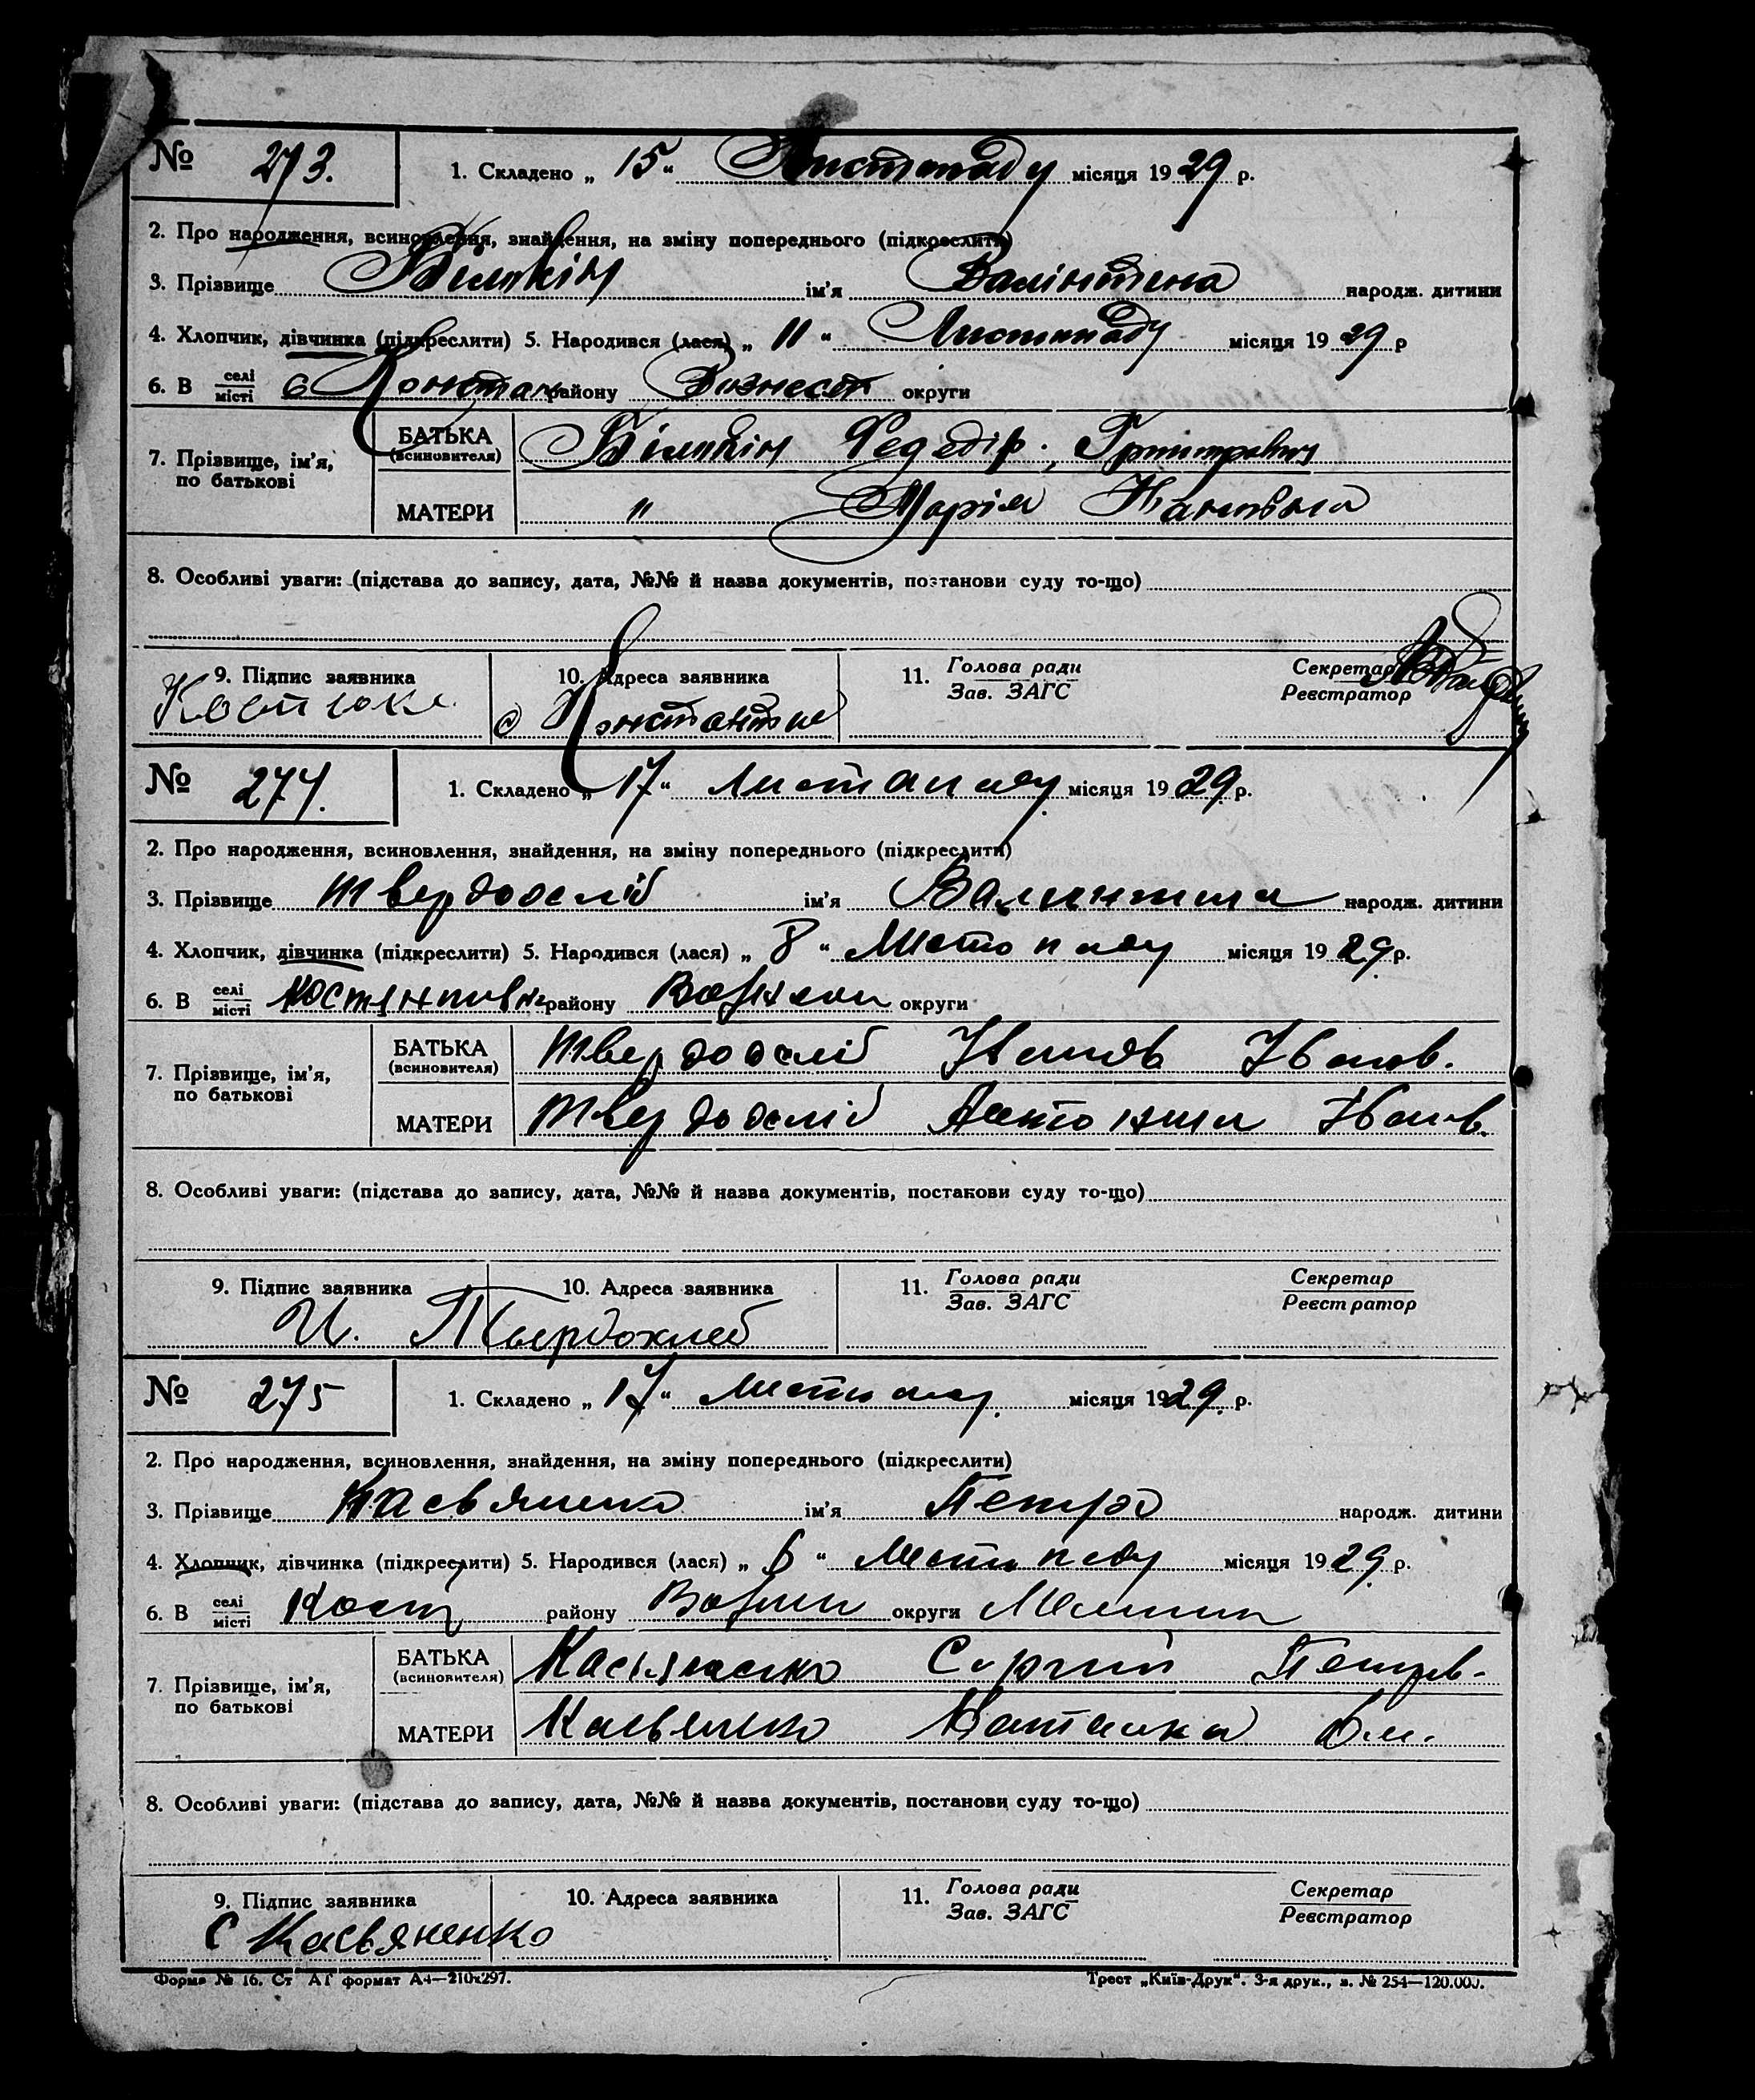 № 273. 1. Складено „ 15 “ Листопаду місяця 1929 р.
2. Про народження, всиновлення, знайдення, на зміну попереднього (підкреслити)
3. Прізвище ім'я Валінтина народж. дитини
4. Хлопчик, дівчинка (підкреслити) 5. Народився (лася) „ 11 “ Листопаду місяця 1929 р
6. В селі/місті с Констан району Вознесен округи
7. Прізвище, ім'я, по батькові
БАТЬКА (всиновителя)
МАТЕРИ " Марія
8. Особливі уваги: (підстава до запису, дата, №№ й назва документів, постанови суду то-що)
9. Підпис заявника 10. Адреса заявника 11. Голова ради Зав. ЗАГС Секретар Реєстратор
с Константин
№ 274. 1. Складено „ 17 “ Листопаду місяця 1929 р.
2. Про народження, всиновлення, знайдення, на зміну попереднього (підкреслити)
3. Прізвище Твердохліб ім'я Валинтина народж. дитини
4. Хлопчик, дівчинка (підкреслити) 5. Народився (лася) „ 8 “ Листопаду місяця 1929 р.
6. В селі/місті району округи
7. Прізвище, ім'я, по батькові
БАТЬКА (всиновителя) Твердохліб Иванов.
МАТЕРИ Твердохліб Антонина Иванов.
8. Особливі уваги: (підстава до запису, дата, №№ й назва документів, постанови суду то-що)
9. Підпис заявника 10. Адреса заявника 11. Голова ради Зав. ЗАГС Секретар Реєстратор
И. Твердохлеб
№ 275 1. Складено „ 17 “ Листопаду місяця 1929 р.
2. Про народження, всиновлення, знайдення, на зміну попереднього (підкреслити)
3. Прізвище Касьяненко ім'я Петро народж. дитини
4. Хлопчик, дівчинка (підкреслити) 5. Народився (лася) „ 6 “ Листопаду місяця 1929 р.
6. В селі/місті Кост району округи
7. Прізвище, ім'я, по батькові
БАТЬКА (всиновителя) Касьяненко Сергий Петров.
МАТЕРИ Касьяненко
8. Особливі уваги: (підстава до запису, дата, №№ й назва документів, постанови суду то-що)
9. Підпис заявника 10. Адреса заявника 11. Голова ради Зав. ЗАГС Секретар Реєстратор
С Касьяненко
Форма № 16. Ст АГ формат А4—210х297. Трест „Київ-Друк“. 3-я друк., з. № 254—120.000.